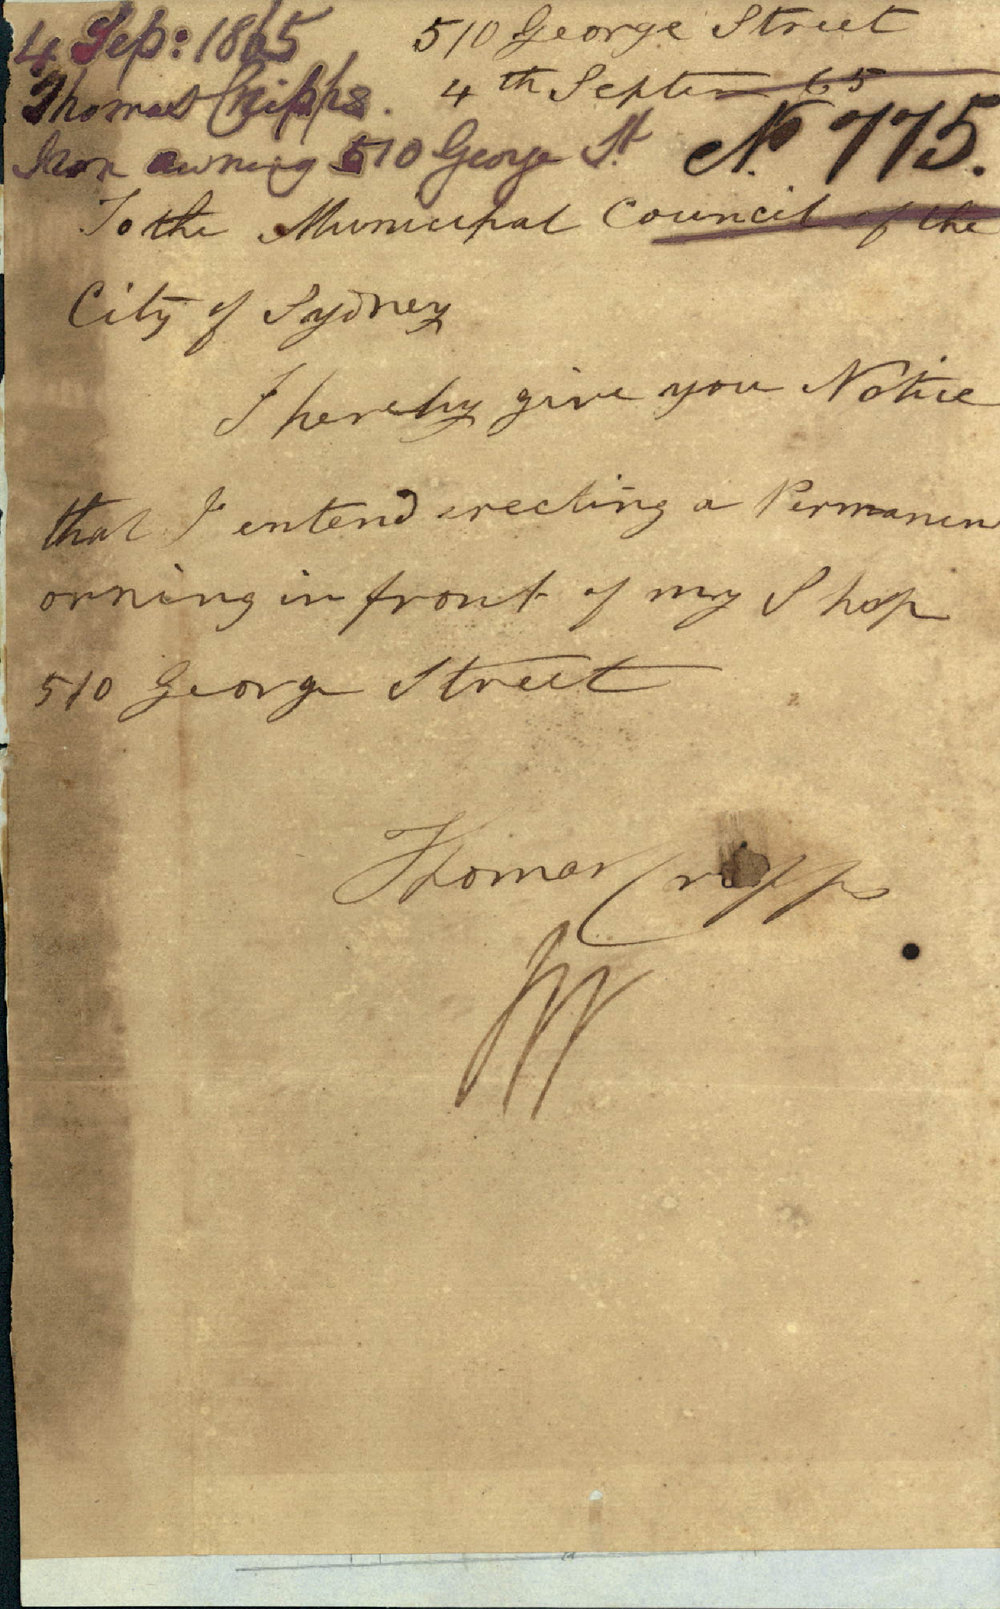 4 Sep: 1865
Thomas Cripps.
Iron awning 510 George St
No. 775.
510 George Street
4th Septem 65
To the Municipal Council of the
City of Sydney
I hereby give you Notice
that I entend erecting a Permanen
orning in front of my Shop
510 George Street
Thomas Cripps